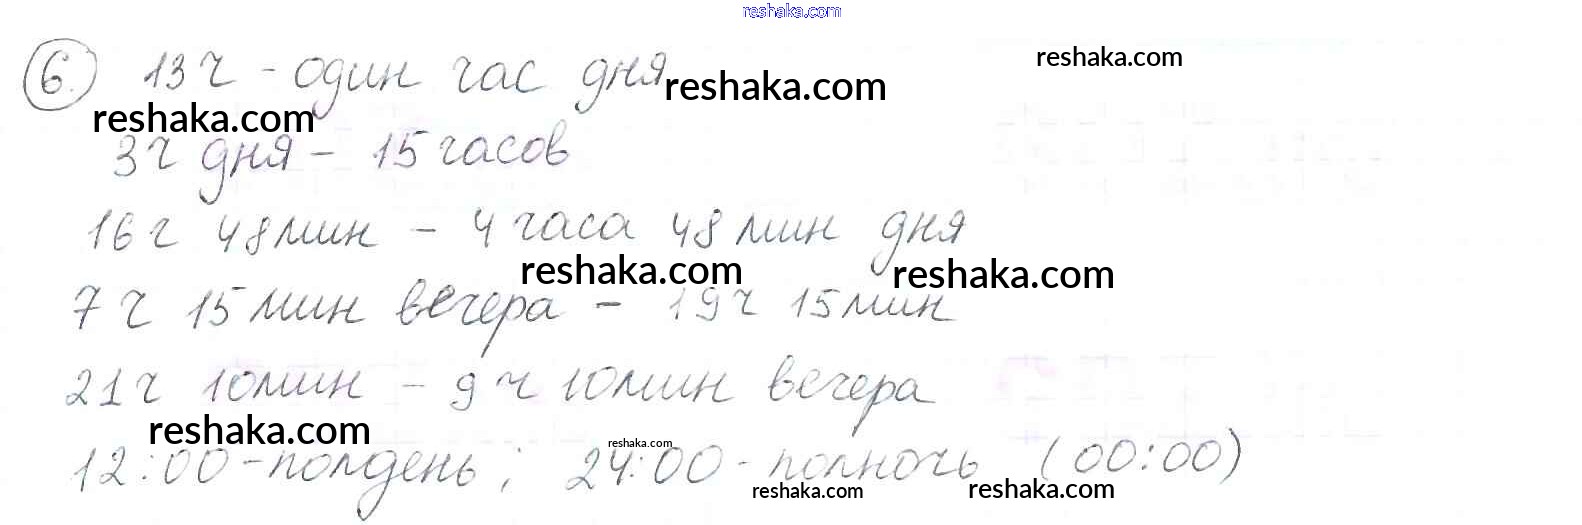 reshaka.com
6. 13 ч - один час дня reshaka.com reshaka.com
reshaka.com
3 ч дня - 15 часов
16 ч 48 мин - 4 часа 48 мин дня
reshaka.com reshaka.com
7 ч 15 мин вечера - 19 ч 15 мин
21 ч 10 мин - 9 ч 10 мин вечера
reshaka.com reshaka.com
12:00 - полдень ; 24:00 - полночь (00:00)
reshaka.com reshaka.com